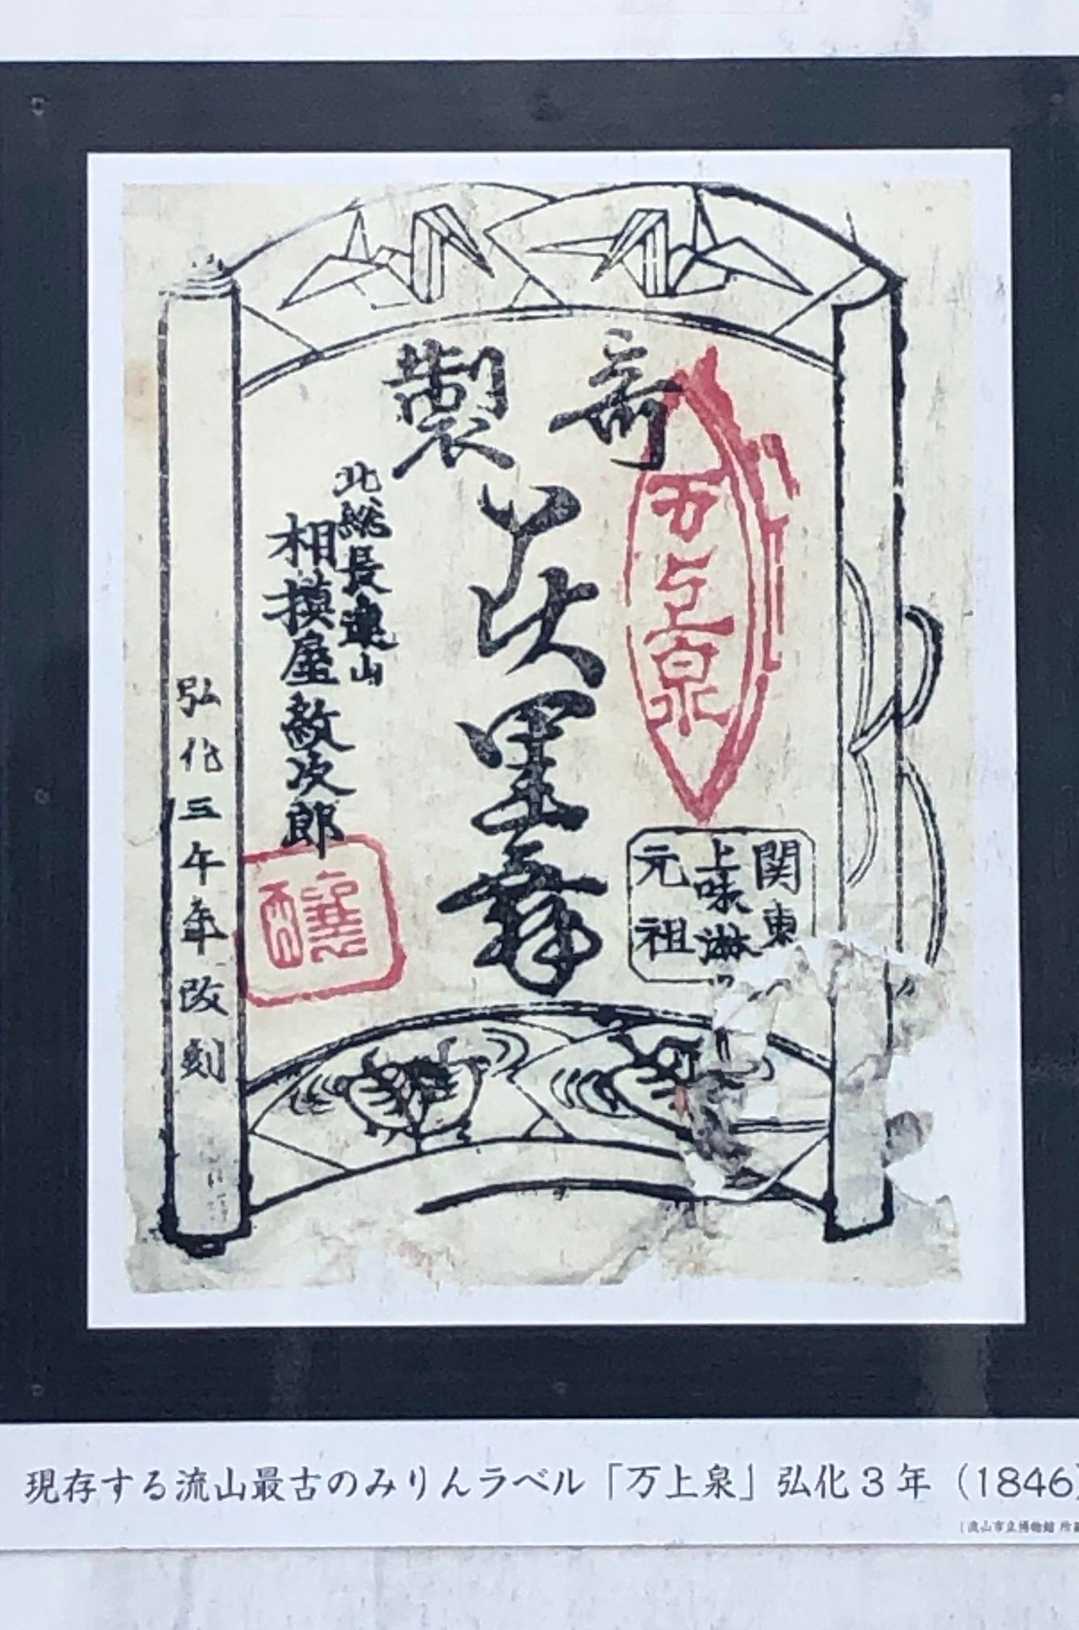 奇製
万上泉
関東
上味淋
元祖
北総長山
相模屋紋次郎
醸
弘化三午年改刻
現存する流山最古のみりんラベル「万上泉」弘化3年（1846）
［流山市立博物館 所